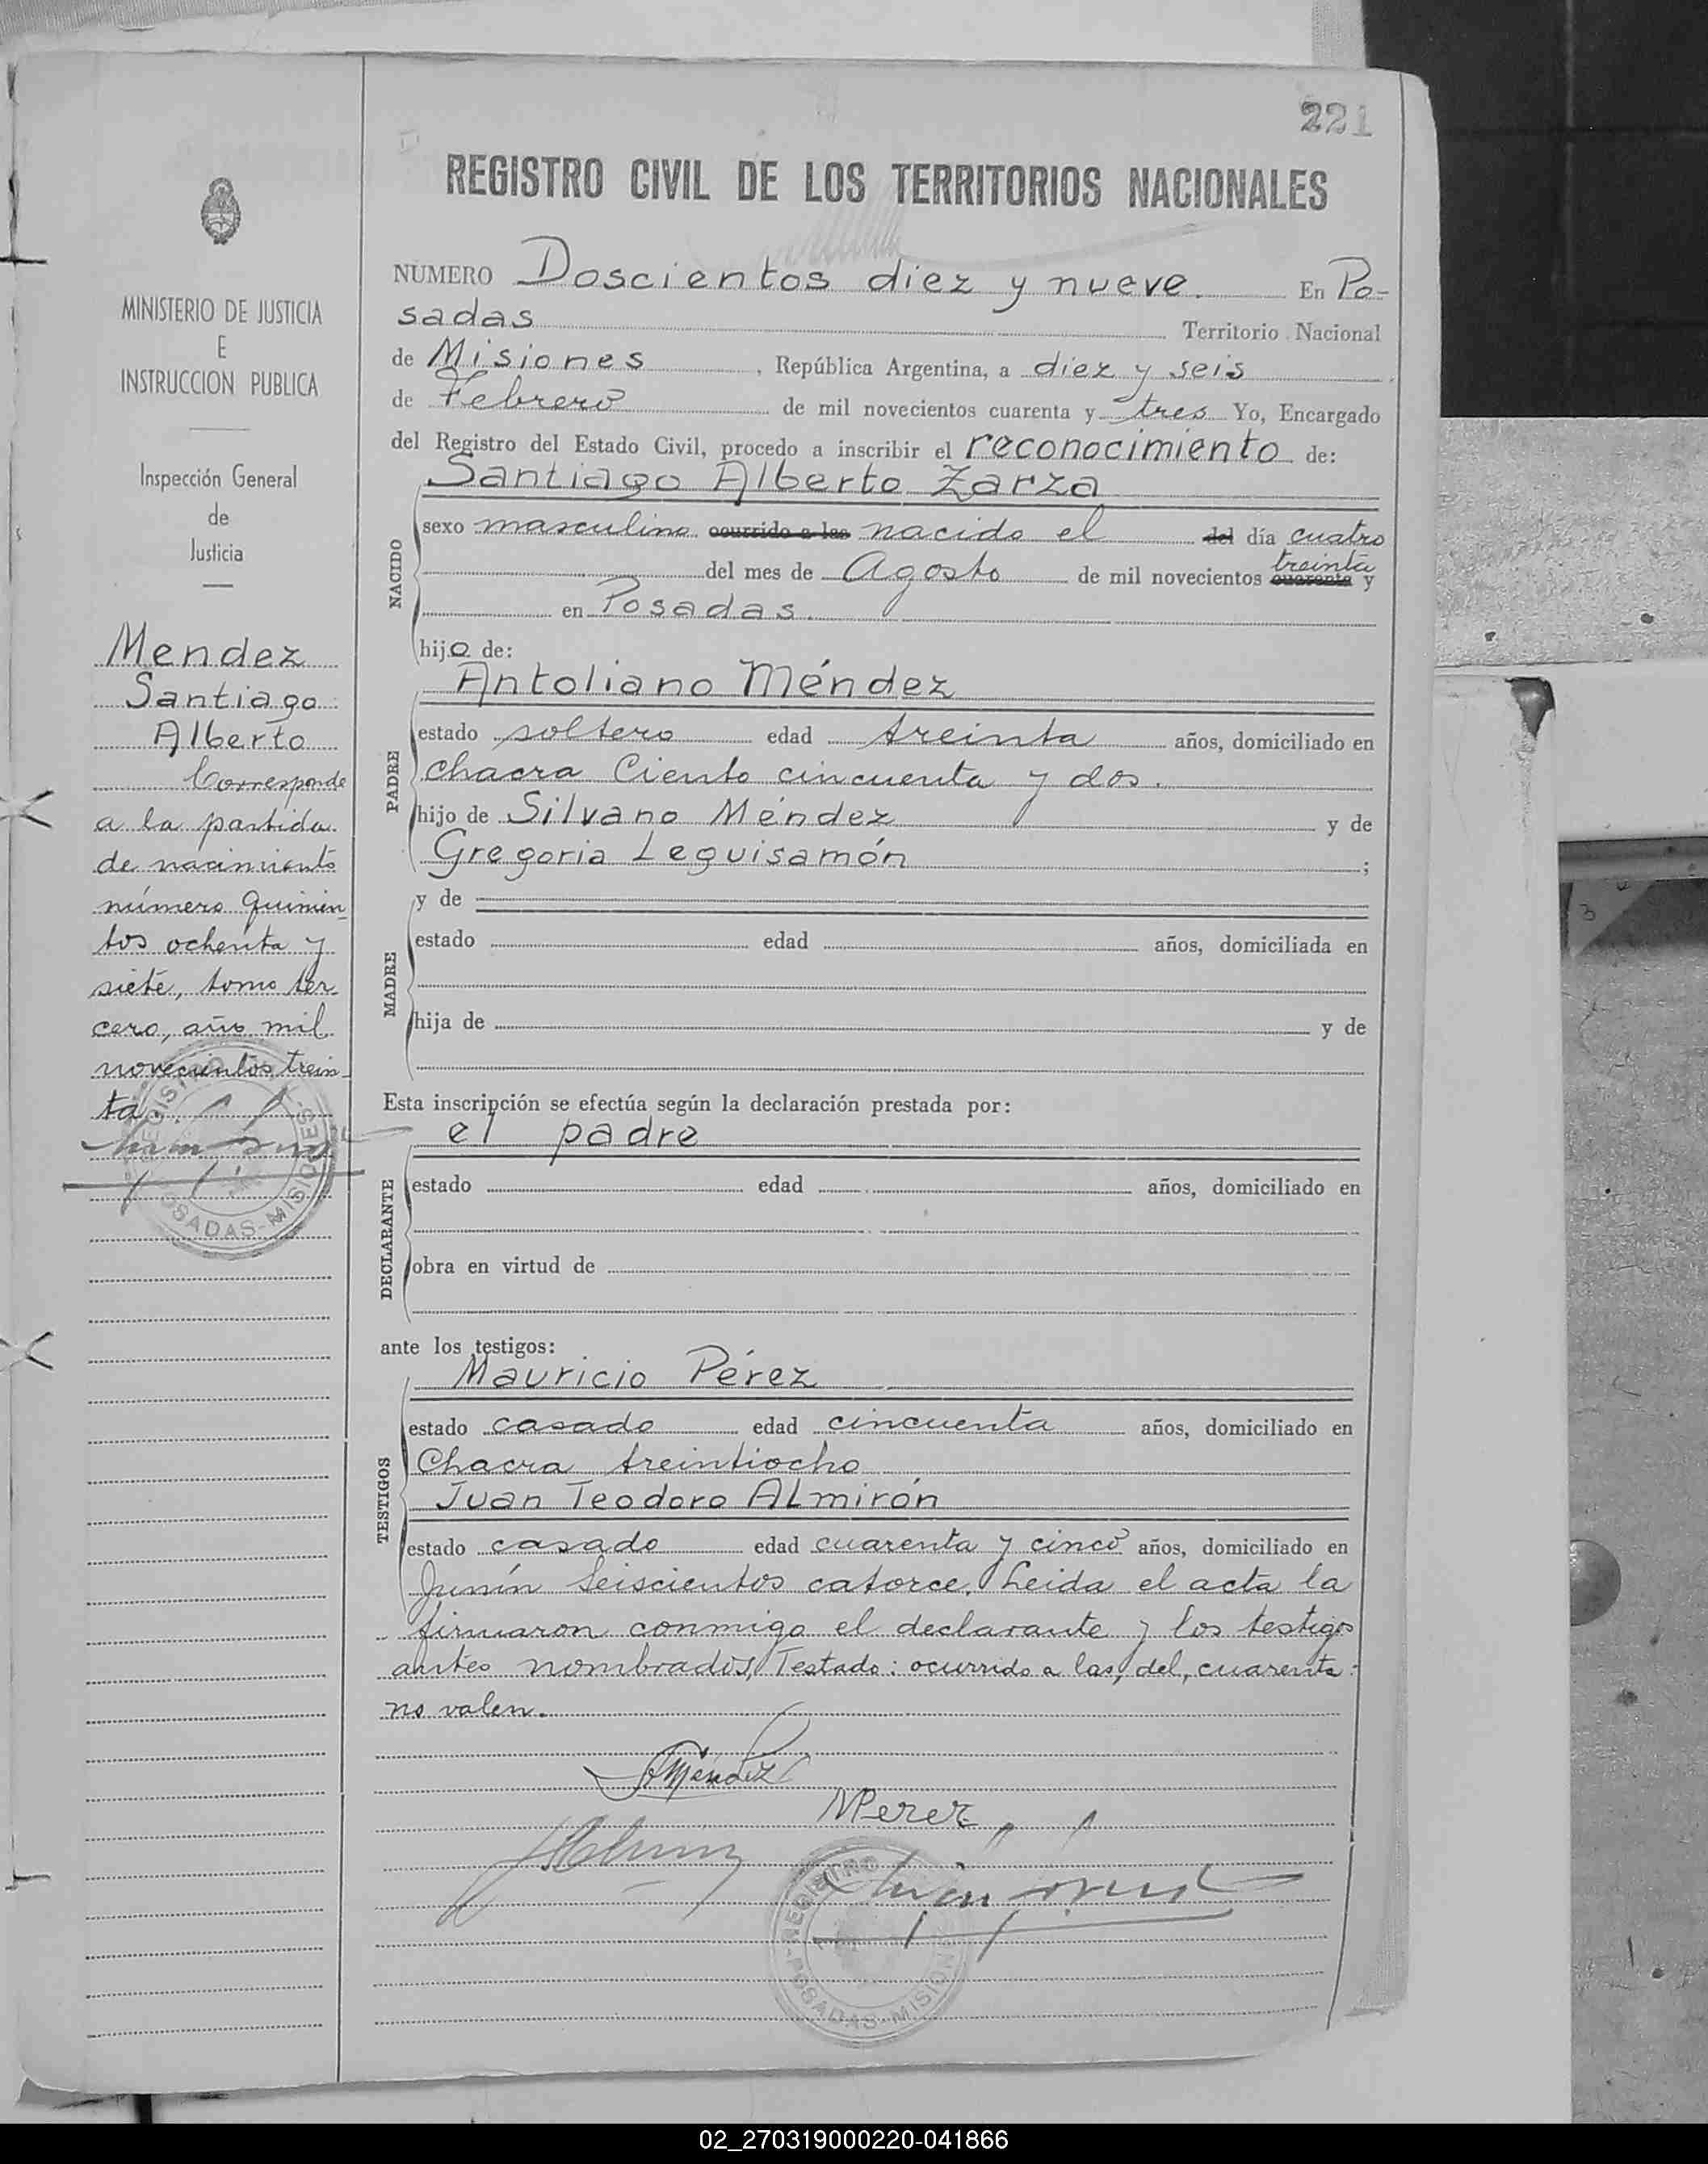 221
REGISTRO CIVIL DE LOS TERRITORIOS NACIONALES
MINISTERIO DE JUSTICIA
E
INSTRUCCION PUBLICA
Inspección General
de
Justicia
Mendez
Santiago
Alberto
Corresponde
a la partida
de nacimiento
número quinien-
tos ochenta y
siete, tomo ter-
cero, año mil
novecientos trein-
ta
NUMERO Doscientos diez y nueve. En Po-
sadas Territorio Nacional
de Misiones, República Argentina, a diez y seis
de Febrero de mil novecientos cuarenta y tres Yo, Encargado
del Registro del Estado Civil, procedo a inscribir el reconocimiento de:
Santiago Alberto Zarza
NACIDO
sexo masculino ocurrido a las nacido el del día cuatro
del mes de Agosto de mil novecientos cuarenta treinta y
en Posadas.
hijo de:
Antoliano Méndez
PADRE
estado soltero edad treinta años, domiciliado en
chacra Ciento cincuenta y dos.
hijo de Silvano Méndez y de
Gregoria Leguisamón ;
MADRE
y de
estado edad años, domiciliada en
hija de y de
Esta inscripción se efectúa según la declaración prestada por:
el padre
DECLARANTE
estado edad años, domiciliado en
obra en virtud de
ante los testigos:
Mauricio Pérez
TESTIGOS
estado casado edad cincuenta años, domiciliado en
Chacra treintiocho
Juan Teodoro Almirón
estado casado edad cuarenta y cinco años, domiciliado en
Junín Seiscientos catorce. Leida el acta la
firmaron conmigo el declarante y los testigos
antes nombrados, Testado: ocurrido a las, del, cuarenta:
no valen.
AMéndez
MPerez
REGISTRO
POSADAS-MISIONES
02_270319000220-041866